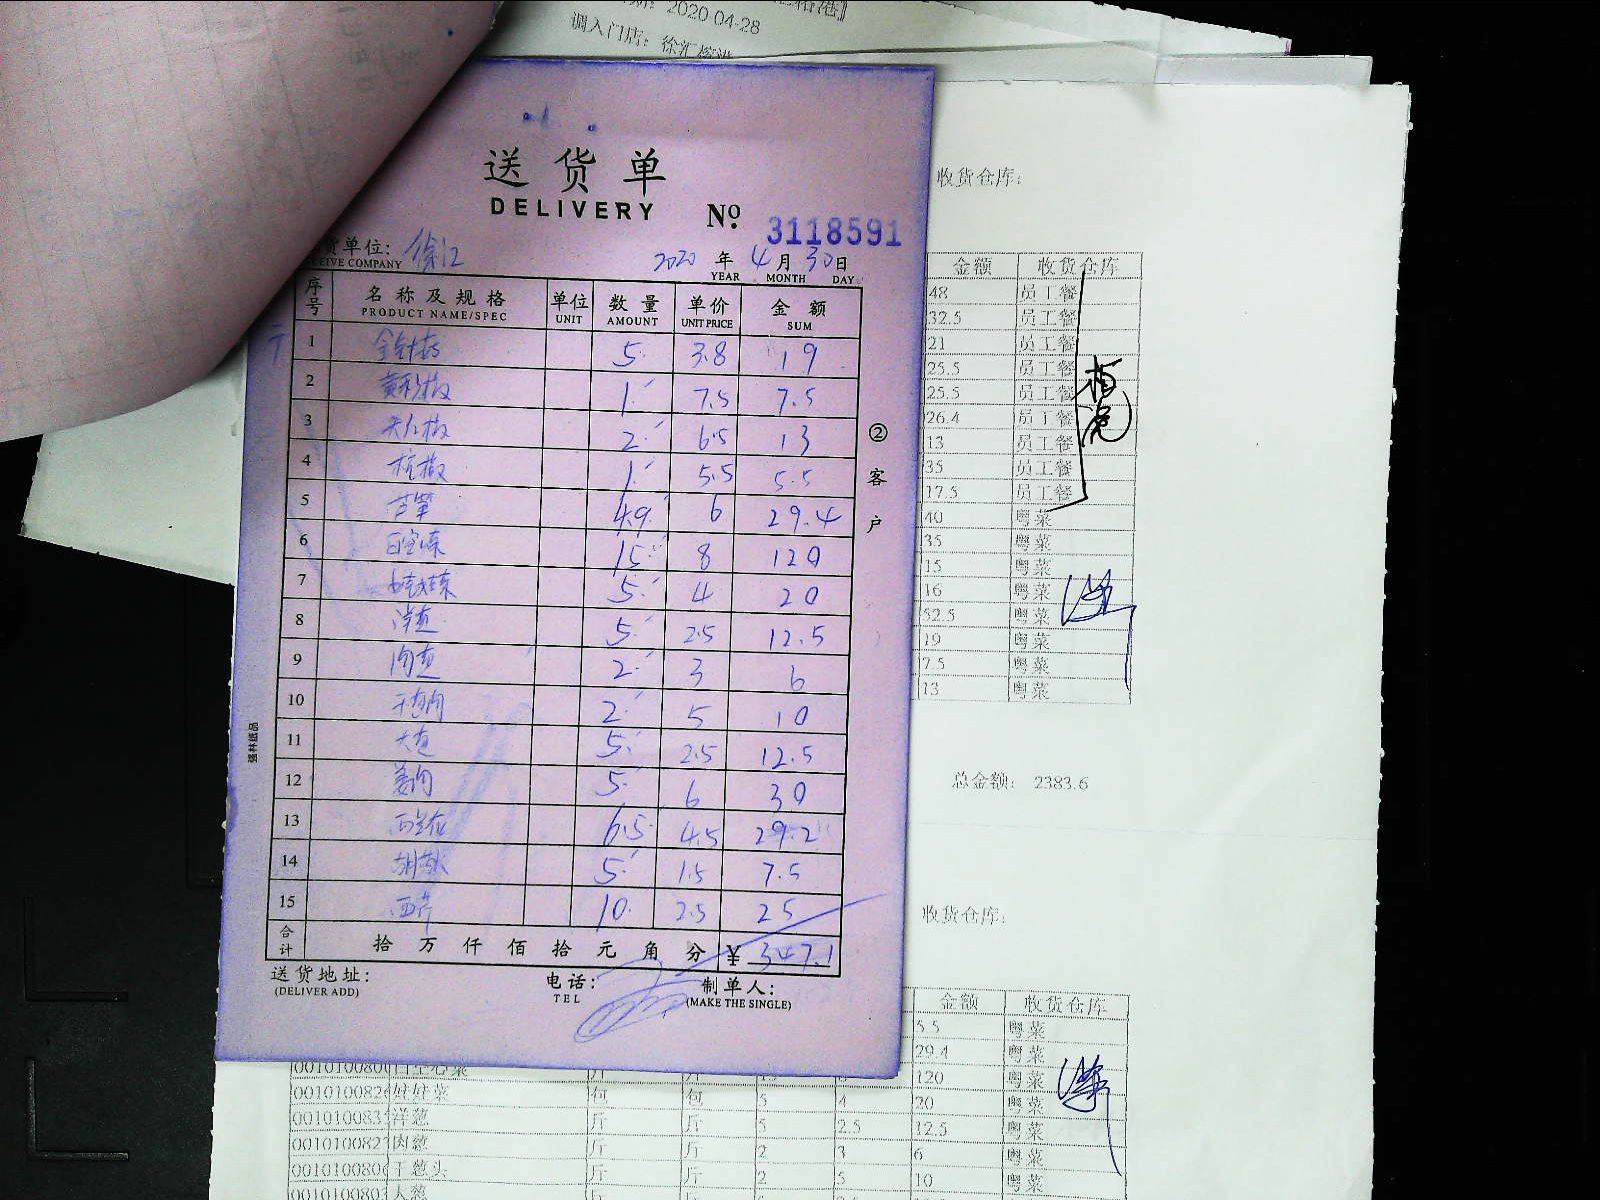 2020-04-28
调入门店：徐汇
送货单
DELIVERY № 3118591
货单位：徐汇 2020 年 4 月 30 日
EIVE COMPANY YEAR MONTH DAY
序号 名称及规格 单位 数量 单价 金额
PRODUCT NAME/SPEC UNIT AMOUNT UNIT PRICE SUM
1 金针菇 5 3.8 19
2 黄彩椒 1 7.5 7.5
3 尖红椒 2 6.5 13
4 杭椒 1 5.5 5.5
5 甘笋 4.9 6 29.4
6 15 8 120
7 5 4 20
8 洋葱 5 2.5 12.5
9 肉葱 2 3 6
10 干葱肉 2 5 10
11 大葱 5 2.5 12.5
12 姜肉 5 6 30
13 西兰花 6.5 4.5 29.2
14 5 1.5 7.5
15 西芹 10 2.5 25
合计 拾 万 仟 佰 拾 元 角 分 ¥ 347.1
送货地址： 电话： 制单人：
(DELIVER ADD) TEL (MAKE THE SINGLE)
②客户
强林纸品
收货仓库：
金额 收货仓库
48 员工餐
32.5 员工餐
21 员工餐
25.5 员工餐
25.5 员工餐
26.4 员工餐
13 员工餐
35 员工餐
17.5 员工餐
40 粤菜
35 粤菜
15 粤菜
16 粤菜
52.5 粤菜
19 粤菜
7.5 粤菜
13 粤菜
总金额： 2383.6
收货仓库：
金额 收货仓库
5.5 粤菜
29.4 粤菜
120 粤菜
娃娃菜 包 包 5 4 20 粤菜
洋葱 斤 斤 5 2.5 12.5 粤菜
肉葱 斤 斤 2 3 6 粤菜
干葱头 斤 斤 2 5 10 粤菜
大葱